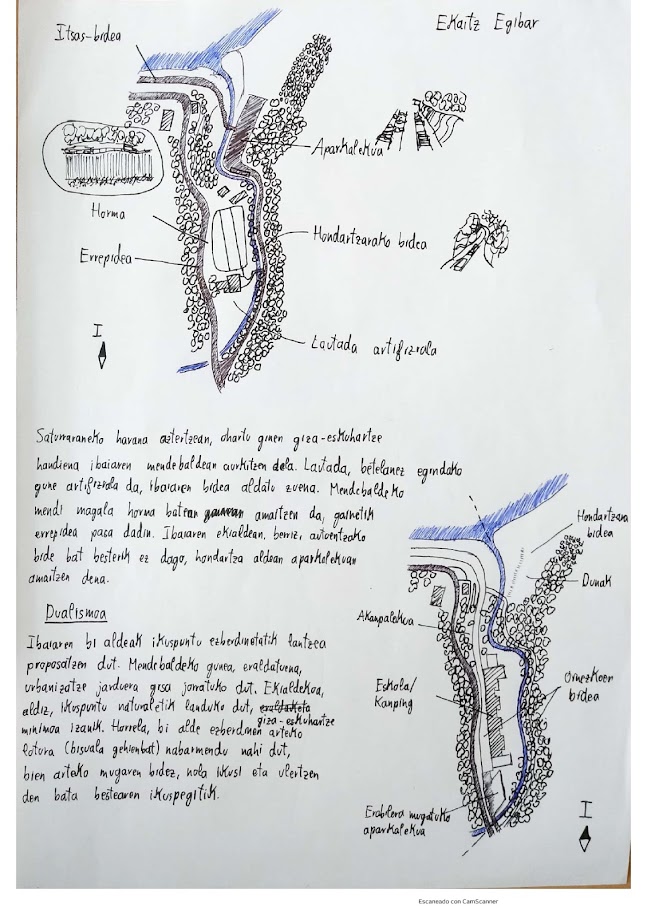 Ekaitz Egibar
Itsas-bidea
Aparkalekua
Horma
Errepidea
Hondartzarako bidea
I
Lautada artifiziala
Saturraraneko harana aztertzean, ohartu ginen giza-eskuhartze
handiena ibaiaren mendebaldean aurkitzen dela. Lautada, betelanez egindako
gune artifiziala da, ibaiaren bidea aldatu zuena. Mendebaldeko
mendi magala horma batean amaitzen da, gainetik
errepidea pasa dadin. Ibaiaren ekialdean, berriz, autoentzako
bide bat besterik ez dago, hondartza aldean aparkalekuan
amaitzen dena.
Dualismoa
Ibaiaren bi aldeak ikuspuntu ezberdinetatik lantzea
proposatzen dut. Mendebaldeko gunea, eraldatuena,
urbanizatze jarduera gisa jorratuko dut. Ekialdekoa,
aldiz, ikuspuntu naturaletik landuko dut, eraldaketa giza-eskuhartze
minimoa izanik. Horrela, bi alde ezberdinen arteko
lotura (bisuala gehienbat) nabarmendu nahi dut,
bien arteko mugaren bidez, nola ikusi eta ulertzen
den bata bestearen ikuspegitik.
Hondartzara
bidea
Dunak
Akanpalekua
Eskola/
Kanping
Oinezkoen
bidea
Erabilera mugatuko
aparkalekua
I
Escaneado con CamScanner